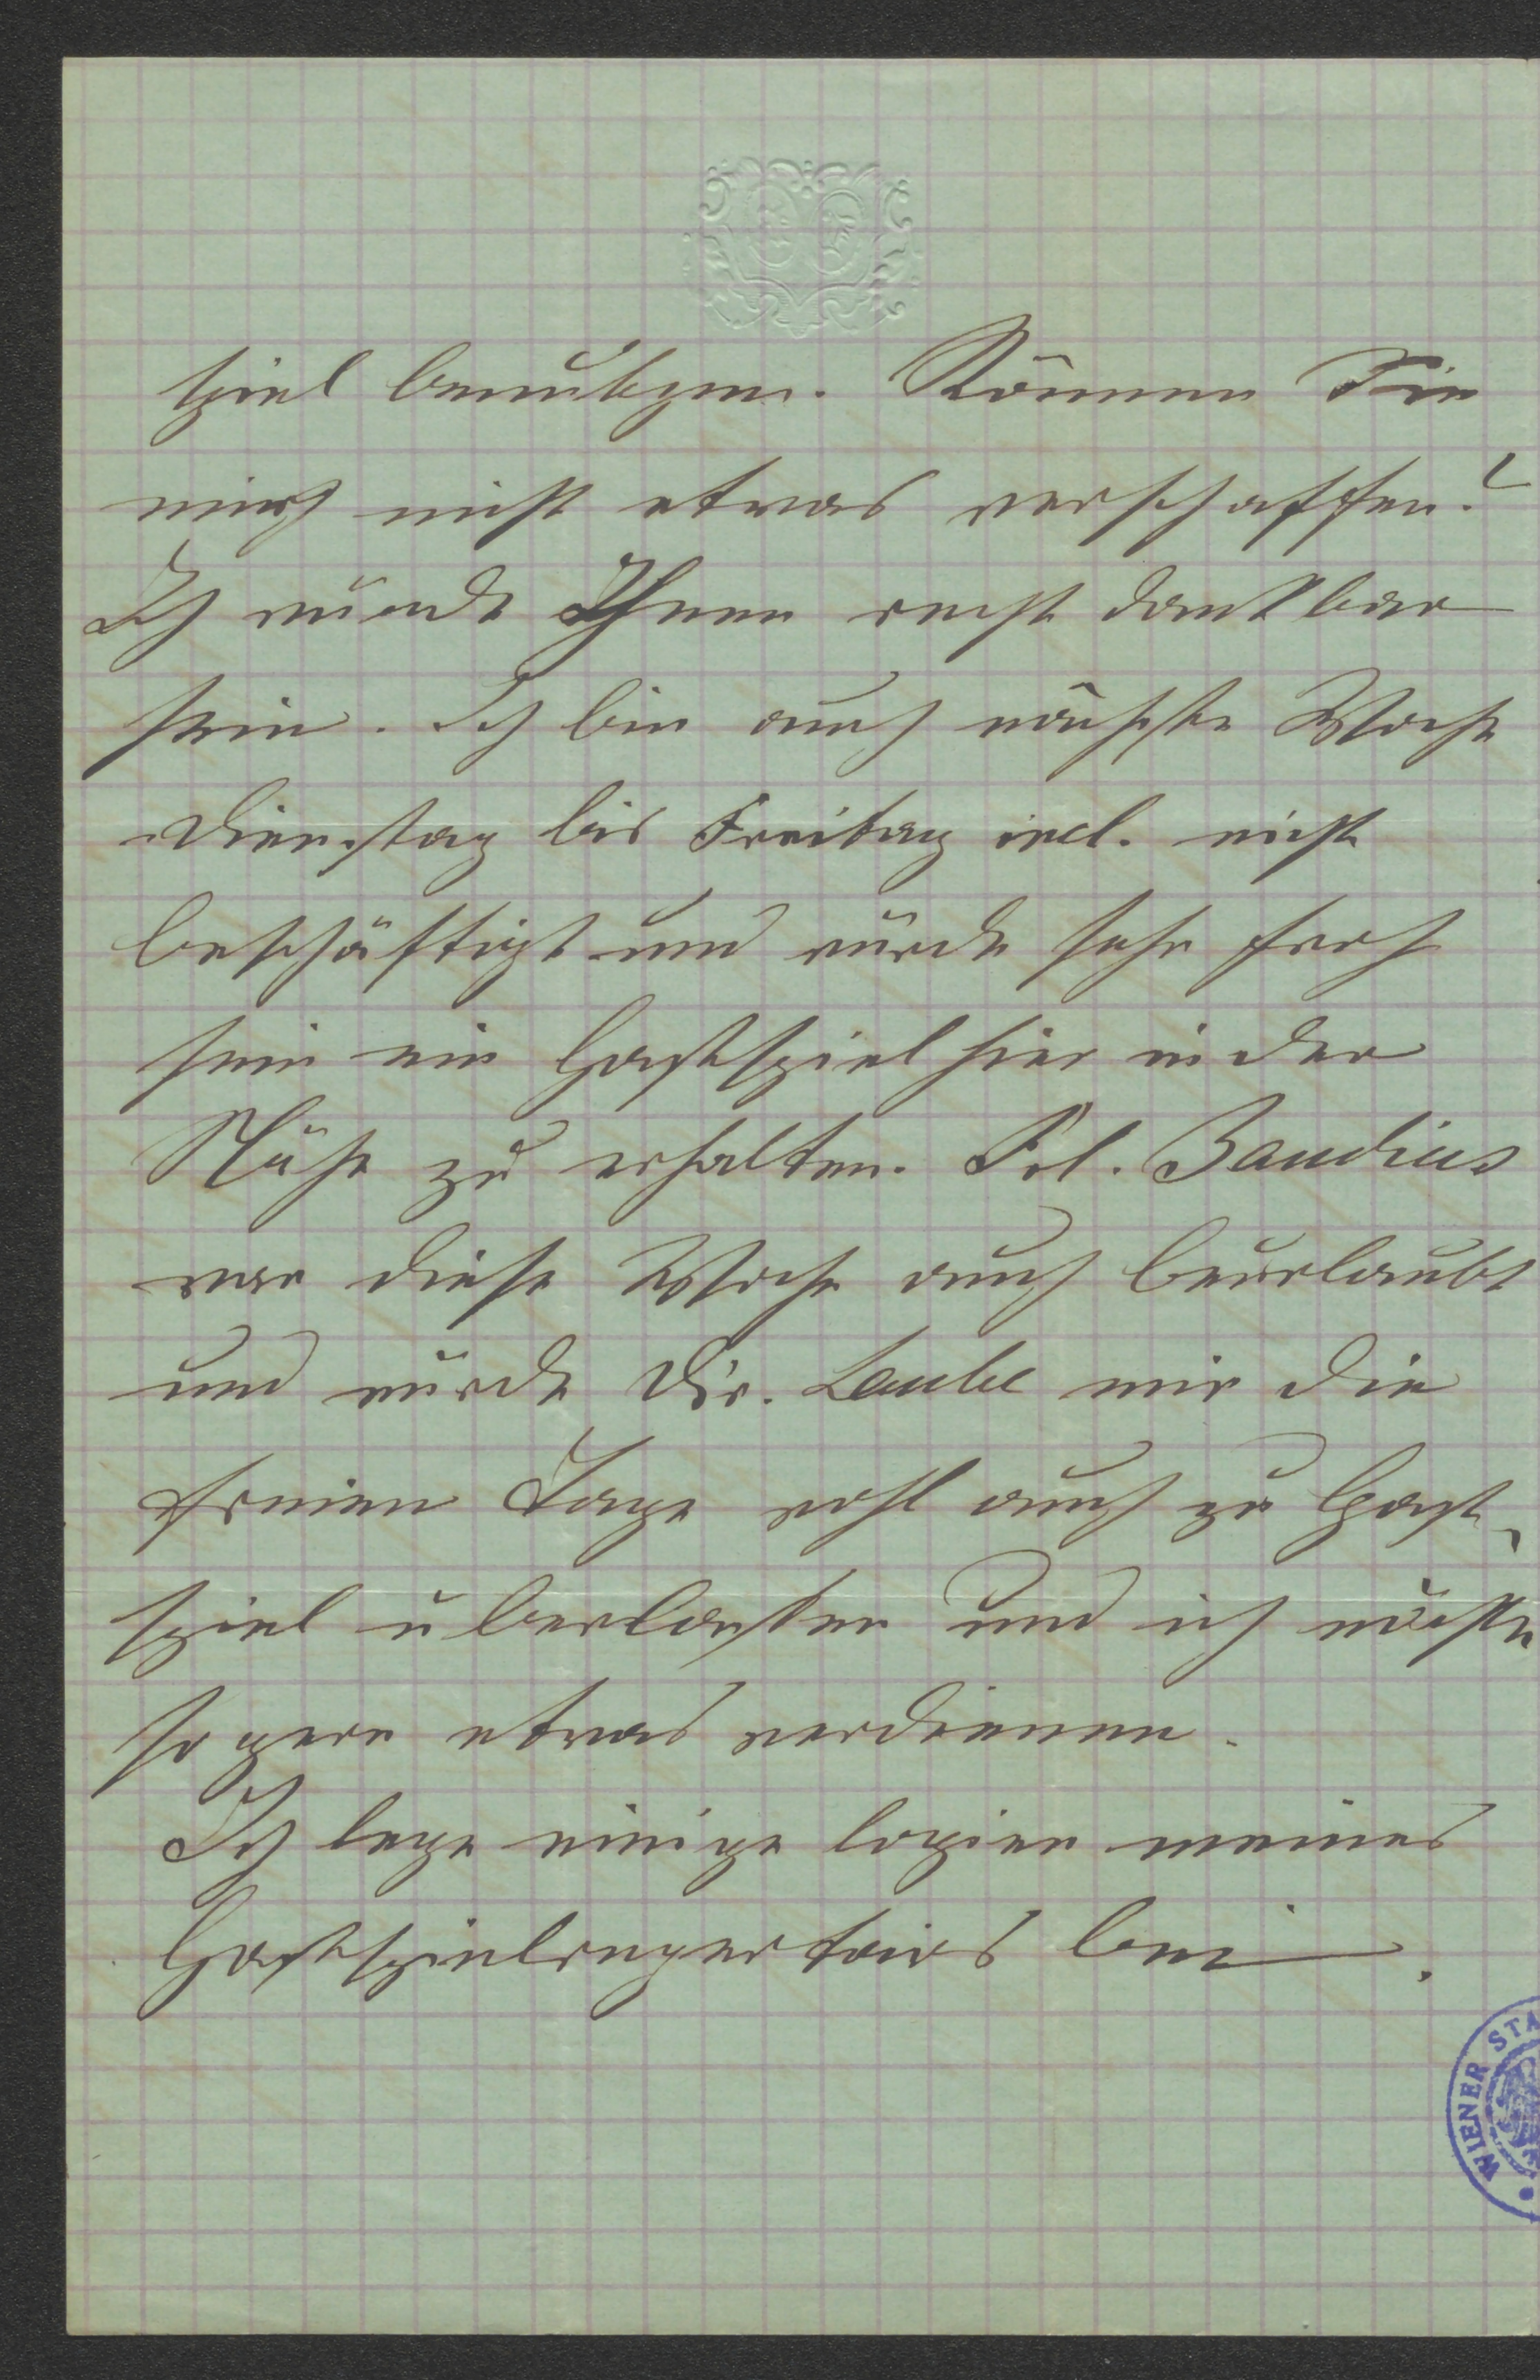 spiel benutzen. Können Sie
mich nicht etwas verschaffen?
Ich würde Ihnen recht dankbar
sein. Ich bin auch nächste Woche
Dienstag bis Freitag incl. nicht
beschäftigt und würde sehr froh
sein ein Gastspiel hier in der
Nähe zu erhalten. Frl. Baudius
war diese Woche auch beurlaubt
und würde Dir. Laube mir die
freien Tage wohl auch zu Gast-
spiel überlassen und ich möchte
so gern etwas verdienen.
Ich lege einige Copien meines
Gastspielrepertoirs bei.
WIENER STA